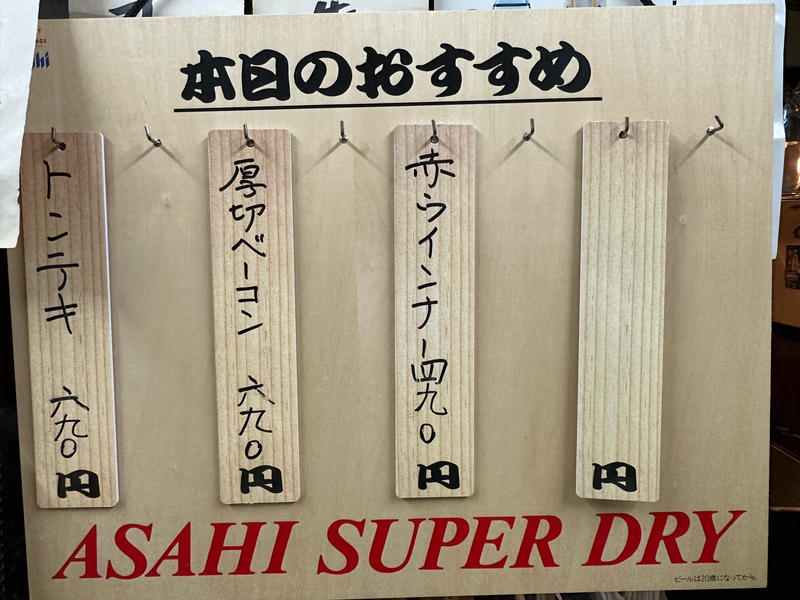 本日のおすすめ
トンテキ 六九0円
厚切ベーコン 六九0円
赤ウインナー四九0円
円
ASAHI SUPER DRY
ビールは20歳になってから。